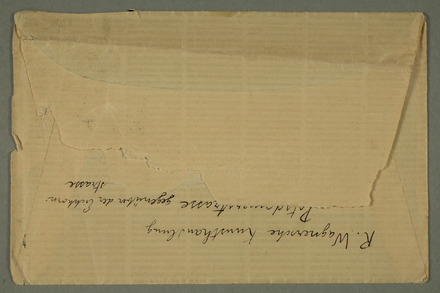 R. Wagnersche Kunsthandlung
Potsdamerstrasse gegenüber der Eichhorn
strasse